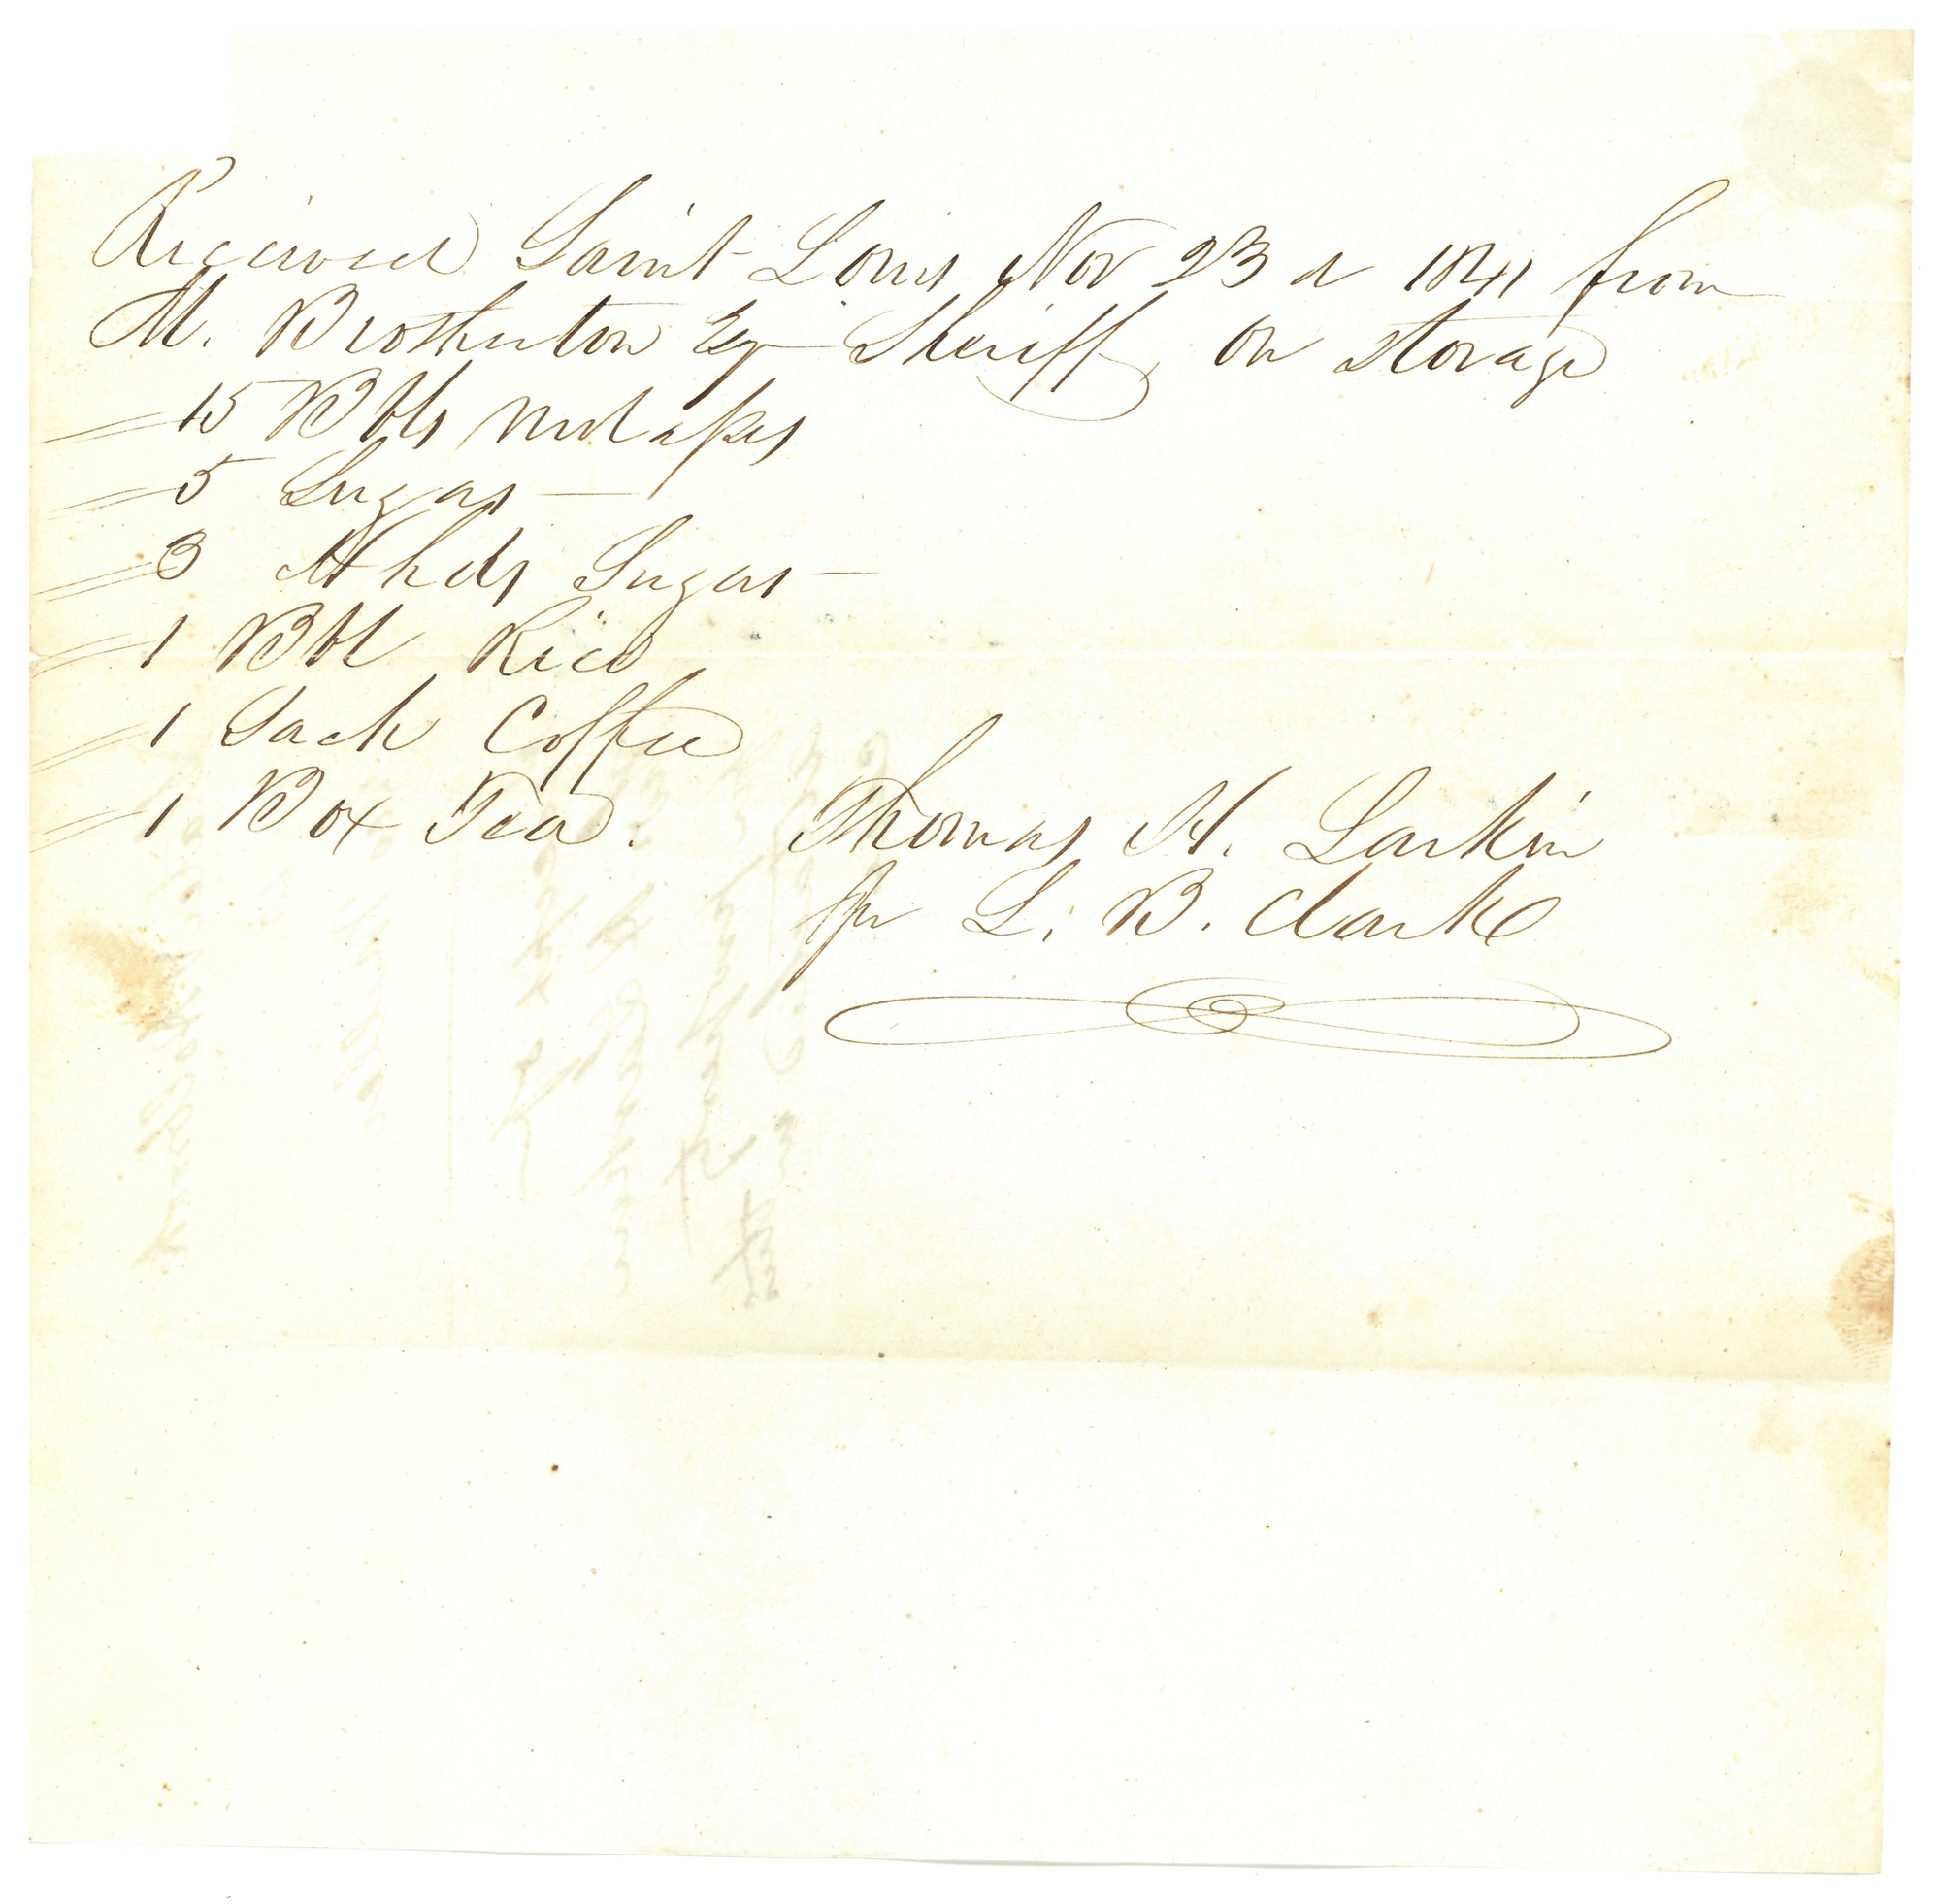 Received Saint Louis Nov 23d 1841 from
M. Brotherton Esqr Sheriff, on storage
15 Bbls Molasses
5 Sugar —
3 Hhds Sugar —
1 Bbl Rice
1 Sack Coffee
1 Box Tea.
Thomas H. Larkin
pr L. B. Clark